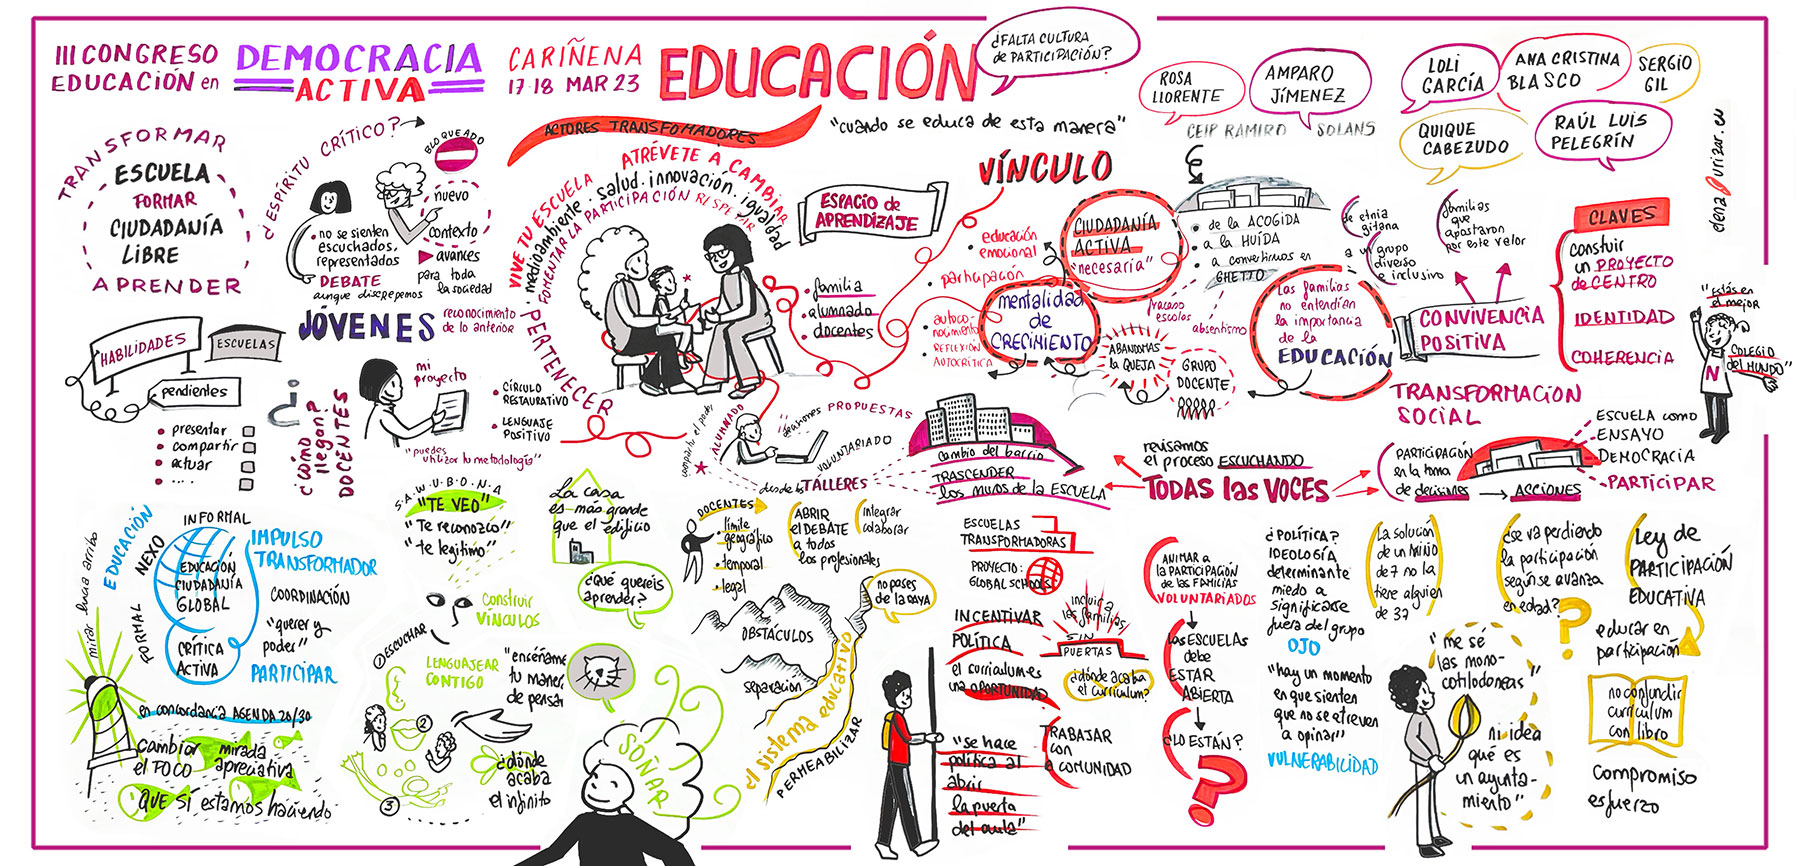 III CONGRESO
EDUCACIÓN en
DEMOCRACIA
ACTIVA
CARIÑENA
17·18 MAR 23
EDUCACIÓN
¿FALTA CULTURA
de PARTICIPACIÓN?
ROSA
LLORENTE
AMPARO
JÍMENEZ
CEIP RAMIRO SOLANS
LOLI
GARCÍA
ANA CRISTINA
BLASCO
SERGIO
GIL
QUIQUE
CABEZUDO
RAÚL LUIS
PELEGRÍN
TRANSFORMAR
ESCUELA
FORMAR
CIUDADANÍA
LIBRE
APRENDER
¿ESPÍRITU CRÍTICO?
BLOQUEADO
nuevo
contexto
avances
para toda
la sociedad
• no se sienten
escuchados,
representados
DEBATE
aunque discrepemos
JÓVENES
reconocimiento
de lo anterior
HABILIDADES
ESCUELAS
pendientes
• presentar
• compartir
• actuar
• ....
¿?
¿cómo
llegan?
DOCENTES
mi
proyecto
"puedes
utilizar tu metodología"
• CÍRCULO
RESTAURATIVO
• LENGUAJE
POSITIVO
ACTORES TRANSFOMADORES
"cuando se educa de esta manera"
ATRÉVETE A CAMBIAR
VIVE TU ESCUELA
medioambiente · salud · innovación · igualdad
FOMENTAR LA PARTICIPACIÓN RESPETAR
PERTENECER
ESPACIO de
APRENDIZAJE
• familia
alumnado
docentes
VÍNCULO
• educación
emocional
• participación
• autoco-
nocimiento
• REFLEXIÓN
• AUTOCRÍTICA
CIUDADANÍA
ACTIVA
"necesaria"
mentalidad
de
CRECIMIENTO
• de la ACOGIDA
• a la HUÍDA
• a convertirnos en
GHETTO
fracaso
escolar
absentismo
ABANDOMAS
la QUEJA
GRUPO
DOCENTE
• de etnia
gitana
• a un grupo
diverso
e inclusivo
familias
que
apostaron
por este valor
Las familias
no entendían
la importancia
de la
EDUCACIÓN
CONVIVENCIA
POSITIVA
CLAVES
construir
un PROYECTO
de CENTRO
IDENTIDAD
COHERENCIA
"Estás en
el mejor
COLEGIO
del MUNDO"
N
elena urizar.eu
TRANSFORMACIÓN
SOCIAL
PARTICIPACIÓN
en la toma
de decisiones
ACCIONES
ESCUELA como
ENSAYO
DEMOCRACIA
PARTICIPAR
revisamos
el proceso ESCUCHANDO
TODAS las VOCES
compartir el poder
ALUMNADO
PROPUESTAS
VOLUNTARIADO
desde los TALLERES
cambio del barrio
TRASCENDER
los muros de la ESCUELA
EDUCACIÓN
NEXO
FORMAL
INFORMAL
EDUCACIÓN
CIUDADANÍA
GLOBAL
CRÍTICA
ACTIVA
IMPULSO
TRANSFORMADOR
COORDINACIÓN
"querer y
poder"
PARTICIPAR
mirar hacia arriba
en concordancia AGENDA 20/30
cambiar
el FOCO
mirada
apreciativa
QUE SÍ estamos haciendo
S·A·W·U·B·O·N·A
"TE VEO"
"Te reconozco"
"te legitimo"
construir
VÍNCULOS
ESCUCHAR
LENGUAJEAR
CONTIGO
"enséñame
tu manera
de pensar
②
③
¿dónde
acaba
el infinito
La casa
es más grande
que el edificio
¿Qué queréis
aprender?
SOÑAR
DOCENTES
• límite
geográfico
• temporal
• legal
ABRIR
el DEBATE
a todos
los profesionales
integrar
colaborar
no pases
de la raya
OBSTÁCULOS
separación
el sistema educativo
PERMEABILIZAR
ESCUELAS
TRANSFORMADORAS
PROYECTO:
GLOBAL SCHOOLS
INCENTIVAR
POLÍTICA
el curriculum es
una OPORTUNIDAD
"se hace
política al
abrir
la puerta
del aula"
incluir a
las familias
SIN
PUERTAS
¿dónde acaba
el currículum?
TRABAJAR
con
la COMUNIDAD
ANIMAR a
la PARTICIPACIÓN
de las FAMILIAS
VOLUNTARIADOS
las ESCUELAS
debe
ESTAR
ABIERTA
¿LO ESTÁN?
?
¿POLÍTICA?
IDEOLOGÍA
determinante
miedo a
significarse
fuera del grupo
OJO
"hay un momento
en que sienten
que no se atreven
a opinar"
VULNERABILIDAD
La solución
de un NIÑO
de 7 no la
tiene alguien
de 37
¿se va perdiendo
la participación
según se avanza
en edad?
?
Ley de
PARTICIPACIÓN
EDUCATIVA
educar en
participación
"me sé
las mono-
cotiledoneas"
ni idea
qué es
un ayunta-
miento"
no confundir
currículum
con libro
compromiso
esfuerzo